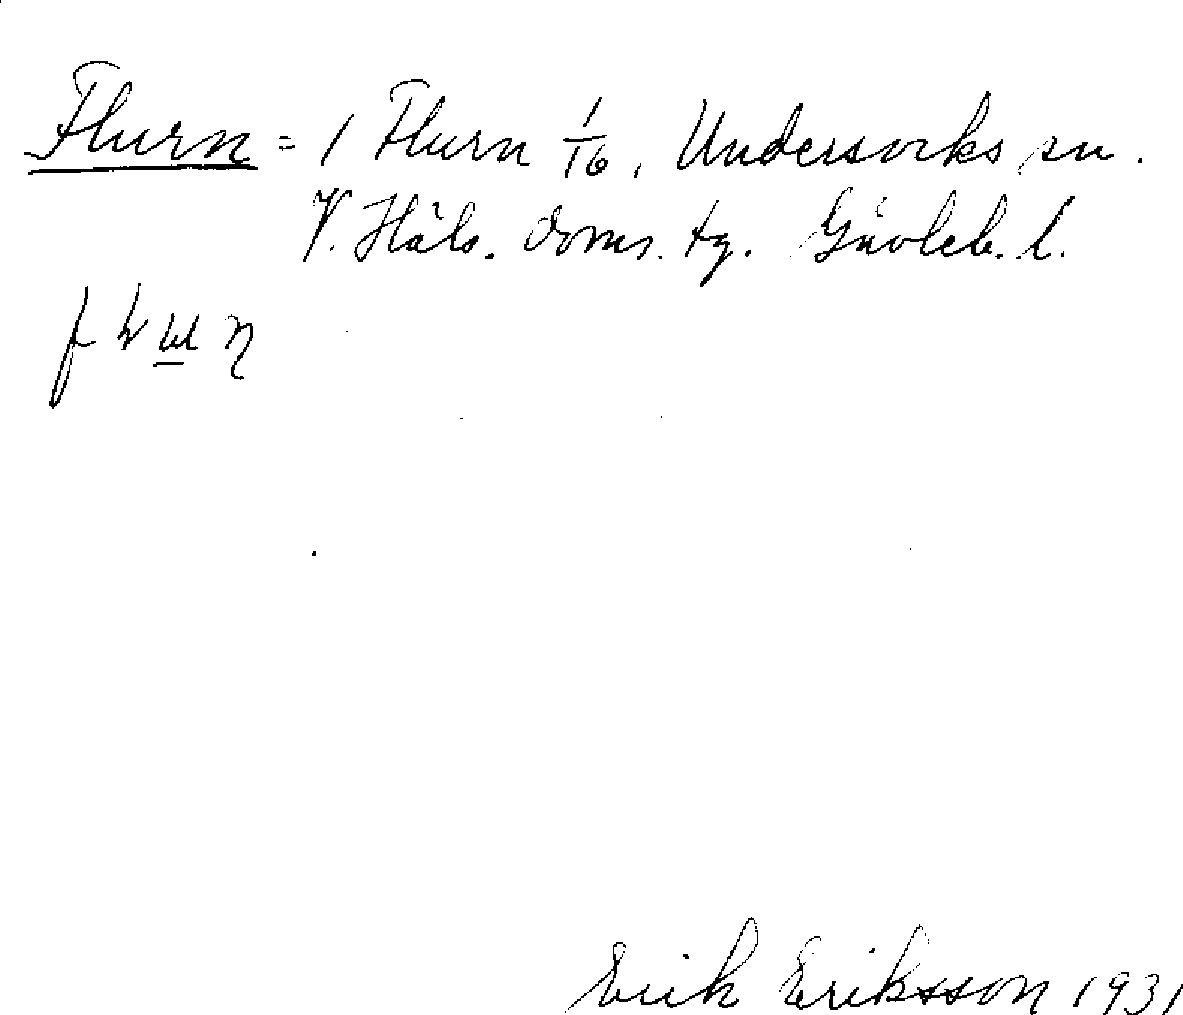 Flurn = 1 Flurn 1/16, Undersviks sn.
V. Häls. doms. tg. Gävleb. l.
Erik Eriksson 1931